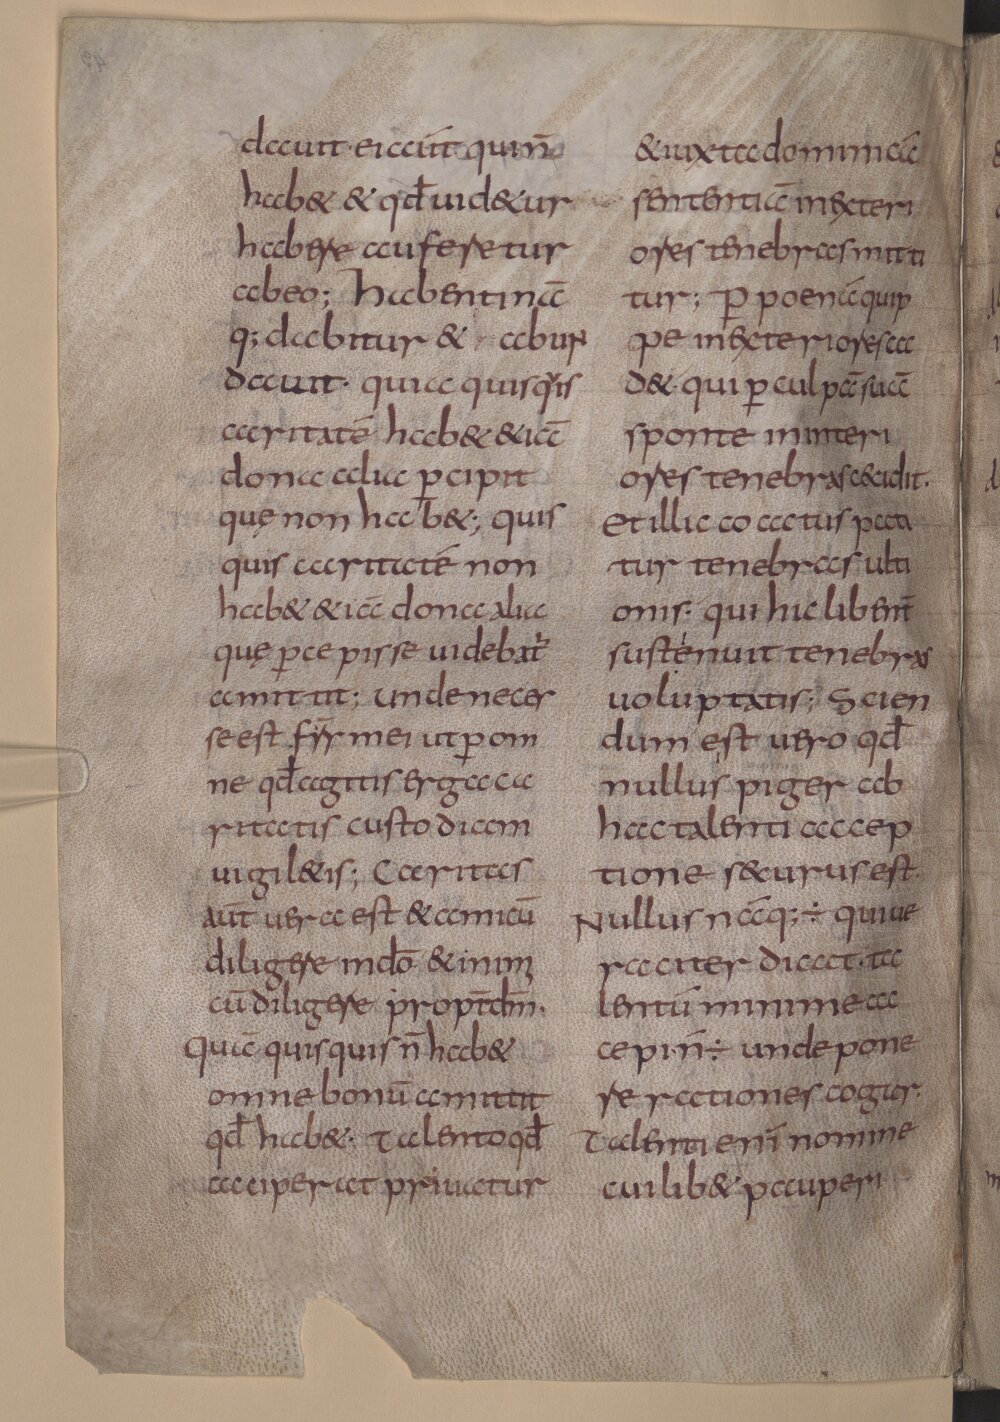 dauit· ei aūt qui n̄
hab& & qd̄ uid&ur
habere auferetur
ab eo; Habenti nā
q; dabitur & abun
dauit· quia quisq̇uis
caritatē hab& &iā
dona alia ꝑcipit
quę non hab&; quis
quis caritatē non
hab& &iā dona alia
quę ꝑcepisse uidebat̄
amittit; unde neces
se est fr̄r mei ut ꝑ om
ne qd̄ agitis erga ca
ritatis custodiam
uigil&is; Caritas
aūt uera est & amicū
diligere in dō & inimi
cū diligere propt̄ dm̄·
Quā quisquis n̄ hab&
omne bonū amittit
qd̄ hab&· Talento qd̄
acciperat priuatur
& iuxta dominicā
sententiā in exteri
ores tenebras mitti
tur; Ꝑ poenā quip
pe in exteriores ca
d& qui ꝑ culpā suā
sponte in interi
ores tenebras cecidit·
Et illic coactus pati
tur tenebras ulti
onis· qui hic libent̄
sustenuit tenebras
uoluptatis; Scien
dum est uero qd̄
nullus piger ab
hac talenti accep
tione securus est·
Nullus nāq; ÷ qui ue
raciter dicat· ta
lentū minime ac
cepi· n̄ ÷ unde pone
re rationes cogar·
Talenti eni̅ nomine
cuilib& pauperi